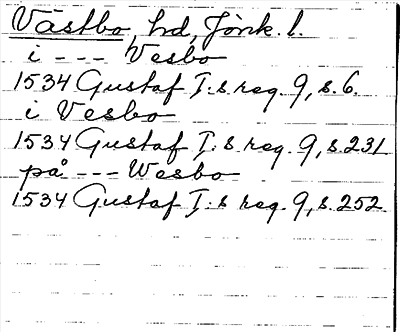 Västbo, hd, Jönk. l.
i --- Vesbo
1534 Gustaf I:s reg. 9, s. 6.
i Vesbo
1534 Gustaf I:s reg. 9, s. 231
på --- Wesbo
1534 Gustaf I:s reg. 9, s. 252